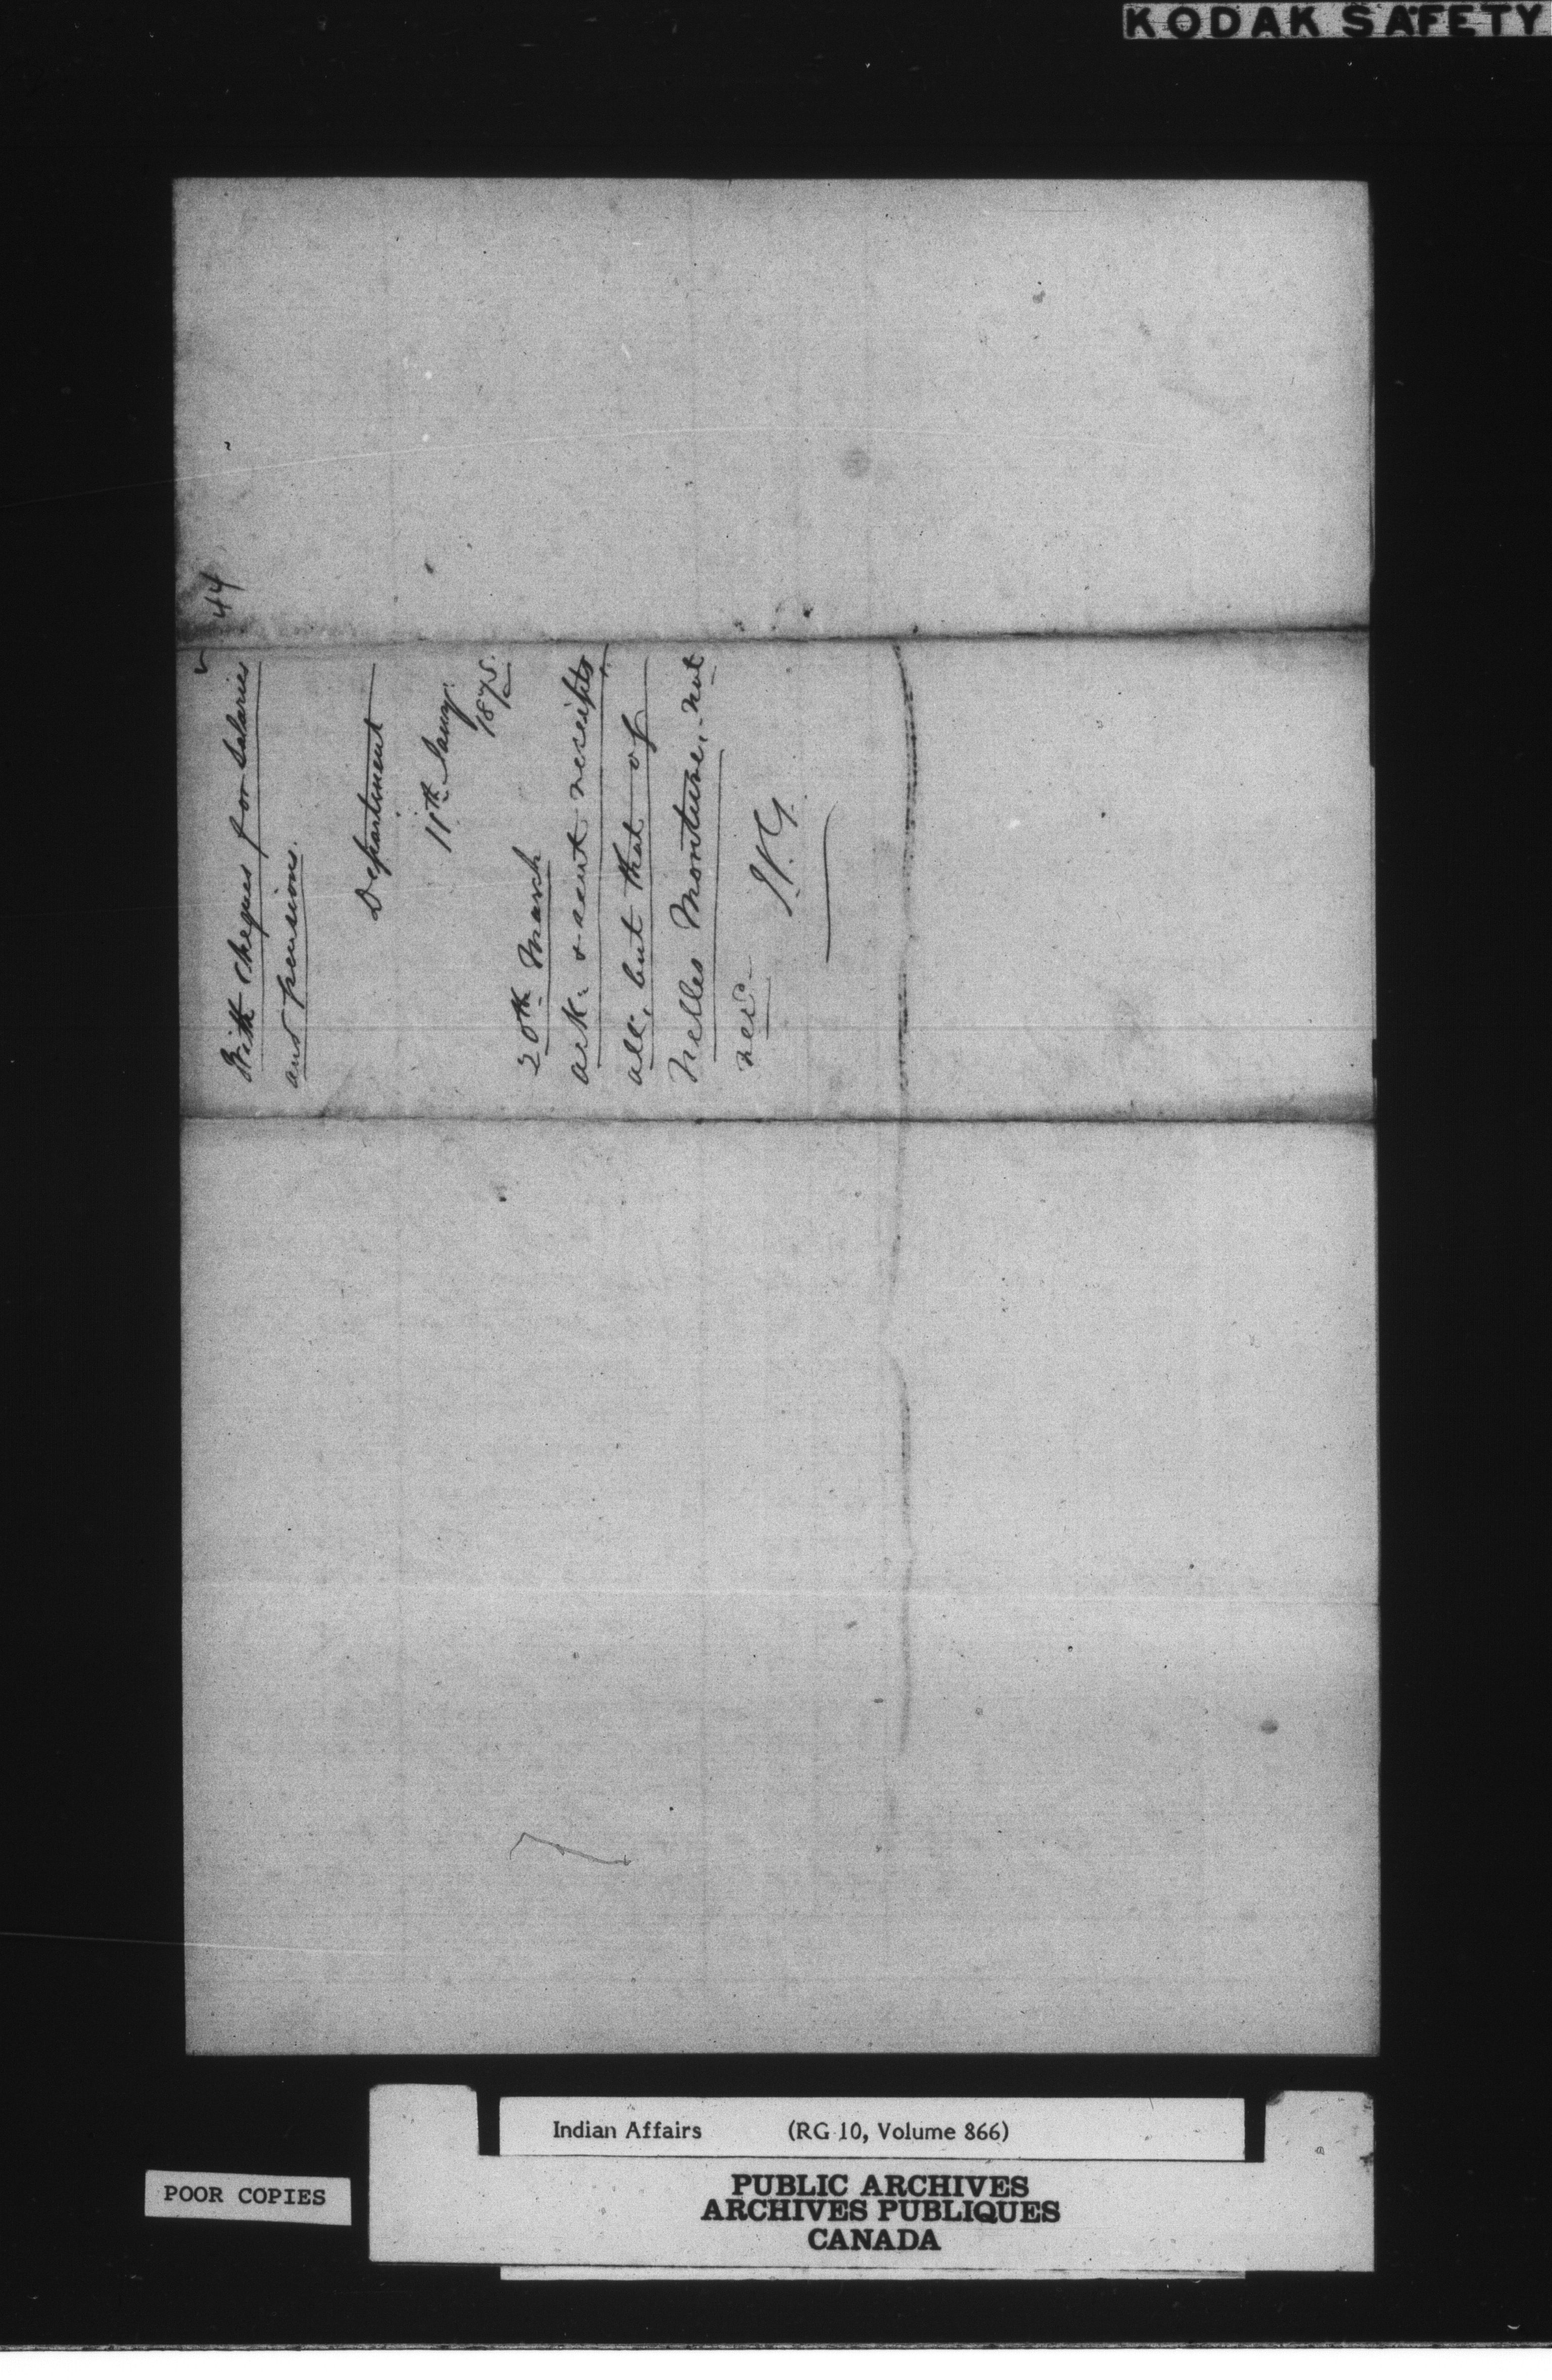 KODAK SAFETY
44
With cheques for Salaries
and pensions.
Department
11th Jany.
1875.
20th March
ack. & sent receipts,
all, but that of
Nelles Monture, not
recd.
J.T.G.
Indian Affairs (RG 10, Volume 866)
POOR COPIES
PUBLIC ARCHIVES
ARCHIVES PUBLIQUES
CANADA